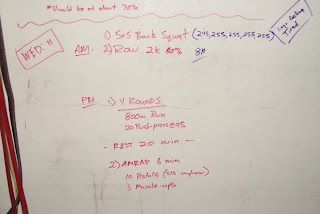 *Should be at about 70%
WED. 11
AM - 1) 5x5 Back Squat (245, 255, 255, 255, 255)
2) Row 2k 80%
8:10
Legs feeling
Tired
PM 1) 4 ROUNDS
800m Run
20 Push-press @ 75
- REST 20 min -
2) AMRAP 6 min
10 Pistols
3 Muscle-ups